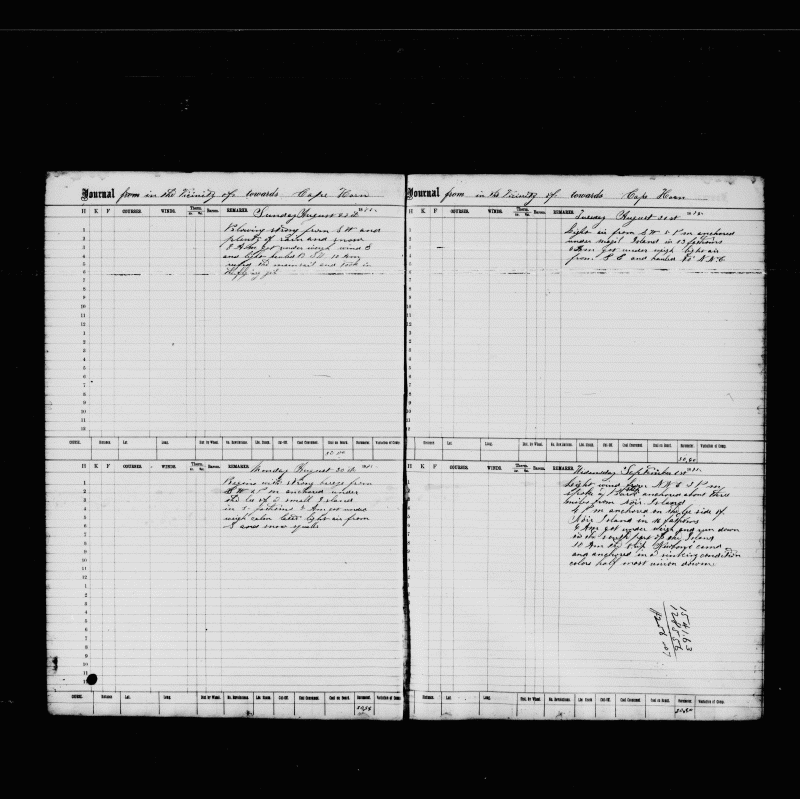 Journal from in the Vicinity of towards Cape Horn
H K F COURSES. WINDS. Therm. Barom. REMARKS. Sunday August 188
Blowing strong from S W and
plenty of rain and snow
8 A.m. Got under weigh wind S
and hauled 10 Am
reefed the mainsail and took in
flying jib
COURSE. Distance. Lat. Long. Dist. by Wheel. No. Revolutions. Lbs. Steam. Cut-Off. Coal Consumed. Coal on Board. Barometer. Variation of Comp.
H K F COURSES. WINDS. Therm. Barom. REMARKS. Monday August 30 th 188
Begins with strong breeze from
S W P m anchored under
the lee of a small Island
in 5 fathoms Am got under
weigh calm later light air from
S and snow squalls
COURSE. Distance. Lat. Long. Dist. by Wheel. No. Revolutions. Lbs. Steam. Cut-Off. Coal Consumed. Coal on Board. Barometer. Variation of Comp.
Journal from in the Vicinity of towards Cape Horn
H K F COURSES. WINDS. Therm. Barom. REMARKS. Tuesday August 31st 188
Light air from S W 5 P m anchored
under Island in 13 fathoms
Am got under weigh light air
from S E and hauled to N.N.E
COURSE. Distance. Lat. Long. Dist. by Wheel. No. Revolutions. Lbs. Steam. Cut-Off. Coal Consumed. Coal on Board. Barometer. Variation of Comp.
H K F COURSES. WINDS. Therm. Barom. REMARKS. Wednesday September 1st 188
Light wind from N W & 3 P m
spoke a Bark anchored about three
miles from Noir Island
4 P m anchored on the lee side of
Noir Island in 16 fathoms
6 Am got under weigh and run down
on the south part of the Island
10 Am the ship came
and anchored in a sinking condition
colors half mast union down
COURSE. Distance. Lat. Long. Dist. by Wheel. No. Revolutions. Lbs. Steam. Cut-Off. Coal Consumed. Coal on Board. Barometer. Variation of Comp.